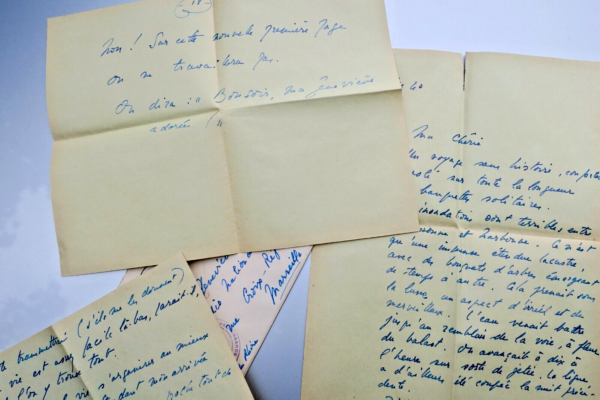 18
Non ! Sur cette nouvelle première page
on ne travaillera pas.
On dira : " Bonsoir, ma Geneviève
adorée ! "
40
Ma Chérie
voyage sans histoire,
sur toute la longueur
banquettes solitaires.
inondations sont terribles, entre
et Narbonne. Ce n'est
qu'une immense étendue lacustre,
avec des bouquets d'arbres émergeant
de temps à autre. Cela prenait sous
la lune, un aspect d'irréel et de
merveilleux. L'eau venait battre
jusqu'au remblai de la voie, à fleur
du ballast. On avançait à dix à
l'heure sur sorte de jetée. La ligne
a d'ailleurs été coupée la nuit précé-
dente.
Croix-
Marseille
transmettre (s'ils me les donnent)
vie est facile là-bas, paraît-il
l'on y trouve tout.
s'organiser au mieux
dant mon arrivée
tout de